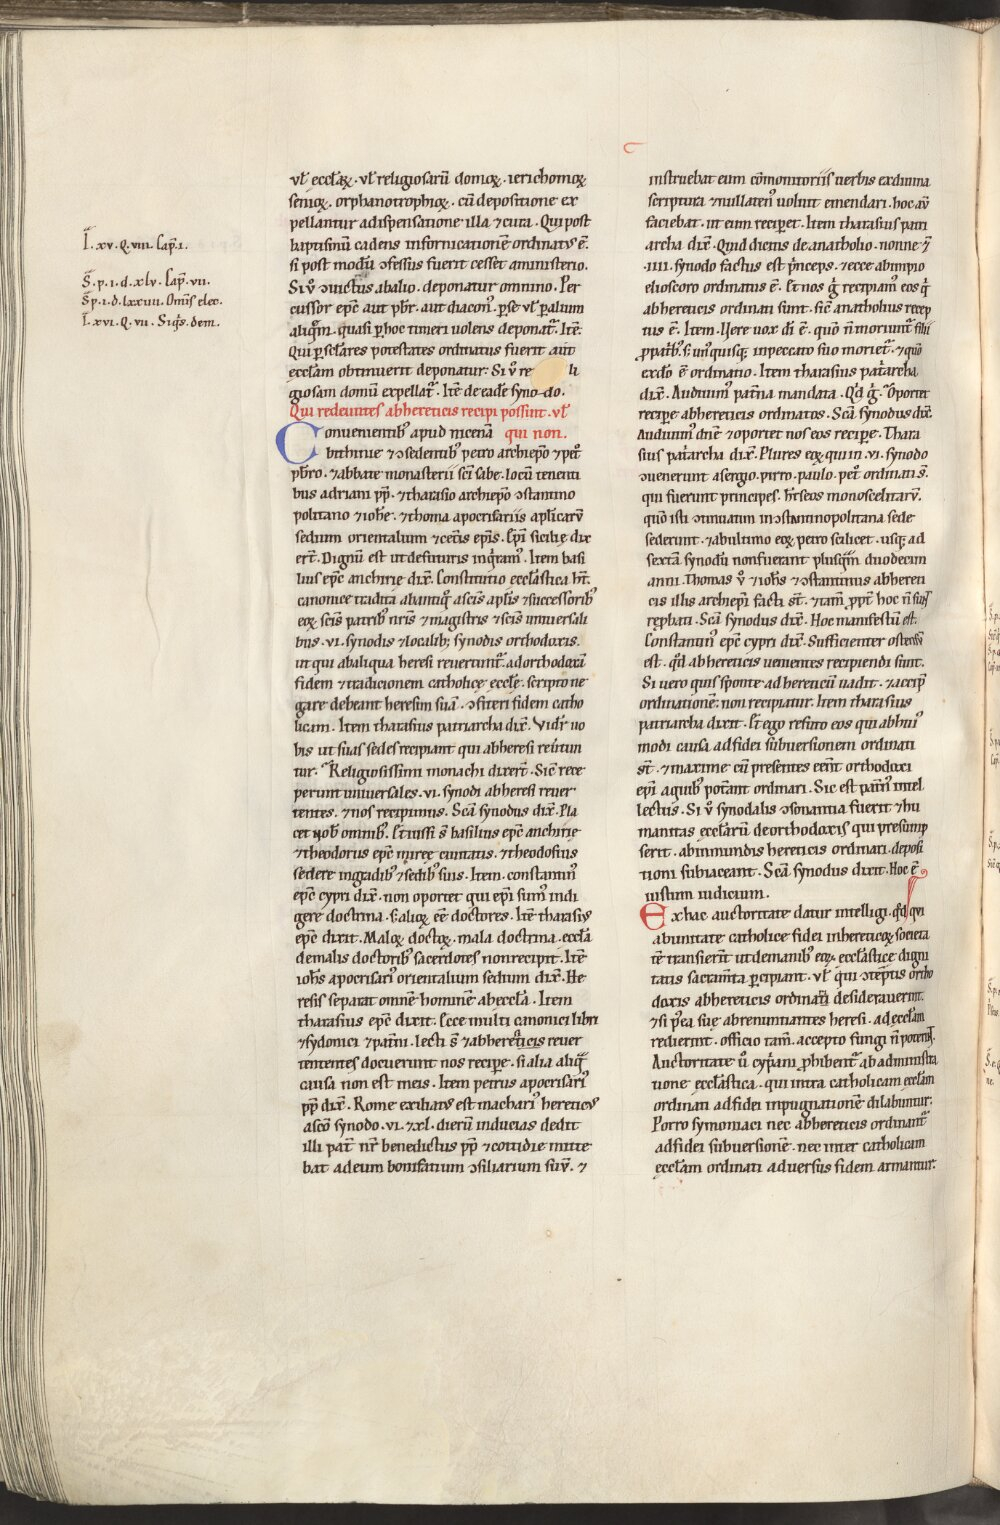 I. xv. Q. viii. Cap̄. i.
S̄. p. i. d. xlv. Cap̄. vii.
S̄. p. i. d. lxxviii. Om̄is elec.
I. xvi. Q. vii. Siq̄s. dem.
vl̄ ecclāꝝ. vl̄ religiosarū domoꝝ. ierichomoꝝ
senioꝝ. orphanotrophioꝝ. cū depositione ex
pellantur adispensatione illa ⁊ cura. Qui post
baptismū cadens infornicationē ordinatꝰ ē.
si post modū ꝯfessus fuerit cesset aministerio.
Si v̊ ꝯuictus abalio. deponatur omnino. Per
cussor epc̄ aut pb̄r. aut diacon̄. ꝑse vl̄ ꝑalium
aliqm̄. quasi ꝑhoc timeri uolens deponat᷑. Itē.
Qui ꝑsclāres potestates ordinatus fuerit aut
eccl̄am obtinuerit deponatur. Si v̊ re li
giosam domū expellat᷑. Itē de eadē syno-do.
Qui redeuntes abhereticis recipi possint. vl̄
qui non.
Conuenientibꝰ apud nicenā
bithinie ⁊ ꝯsedentibꝰ petro archiep̄o ⁊ pet̄
pb̄ro. ⁊ abbate monasterii sc̄i sabe. locū tenenti
bus adriani pp̄. ⁊ tharasio archiep̄o ꝯstantino
politano ⁊ ioh̄e. ⁊ thoma apocrisariis apl̄icarū
sedium orientalium ⁊ cet̄is ep̄is. Ep̄i sicilię dix
ert̄. Dignū est ut defuturis inq̄ramꝰ. Item basi
lius epc̄ anchirie dix̄. Constitutio ecclāstica hn̄t.
canonice tradita abantiqꝰ asc̄is apl̄is ⁊ successoribꝰ
eoꝝ. sc̄is patribꝰ nr̄is ⁊ magistris ⁊ sc̄is uniuersali
bus. vi. synodis ⁊ localibꝫ synodis orthodoxis.
ut qui abaliqua heresi reuertunt᷑. adorthodoxā
fidem ⁊ tradicionem catholicę eccl̄ę. scripto ne
gare debeant heresim suā. ꝯfiteri fidem catho
licam. Item tharasius patriarcha dix̄. Vidr̄ uo
bis ut suas sedes recipiant qui abheresi reūtun
tur. Religiosissimi monachi dixert̄. Sic̄ rece
perunt uniuersales. vi. synodi abheresi reuer
tentes. ⁊ nos recipimus. Scā synodus dix̄. Pla
cet nob̄ omnibꝰ. Et iussi s̄ basilius epc̄ anchirie
⁊ theodorus epc̄ mirę ciuitatis. ⁊ theodosius
sedere ingradibꝰ ⁊ sedibꝰ suis. Item. constantinꝰ
epc̄ cypri dix̄. non oportet qui ep̄i sumꝰ indi
gere doctrina. s; alioꝝ eē doctores. Itē tharasiꝰ
epc̄ dixit. Maloꝝ doctoꝝ. mala doctrina. ecclā
demalis doctoribꝰ sacerdotes non recipit. Itē
ioh̄s apocrisariꝰ orientalium sedium dix̄. He
resis separat omnē hominē abecclā. Item
tharasius epc̄ dixit. Ecce multi canonici libri
⁊ synodici ⁊ pat̄ni. lecti s̄ ⁊ abhereticis reuer
tentes docuerunt nos recipe. si alia aliq̄
causa non est meis. Item petrus apocrisariꝰ
pp̄ dix̄. Rome exiliatꝰ est machariꝰ hereticꝰ
ascō synodo. vi. ⁊ xl. dierū inducias dedit
illi pat̄ nr̄ benedictus pp̄ ⁊ cottidie mitte
bat adeum bonifatium ꝯsiliarium suū. ⁊
instruebat eum cōmonitoriis uerbis exdiuina
scriptura ⁊ nullaten̄ uoluit emendari. hoc aū
faciebat. ut eum reciꝑet. Item tharasius patri
archa dix̄. Quid dicitis de anatholio. nonne ⁊
.iiii. synodo factus est p̄nceps. ⁊ ecce abimpio
elioscoro ordinatus ē. Et nos ḡ recipiam̄ eos q̄
abhereticis ordinati sunt. sic̄ anatholius recep
tus ē. Item. Uere uox di ē. quō n̄ moriunt᷑ filii
ꝓ patribꝰ s; un̄ quisqꝫ inpeccato suo moriet᷑. ⁊ quō
exdō ē ordinatio. Item tharasius pat̄archa
dix̄. Audiuimꝰ pat̄na mandata. Qd̄ ḡ. Oportet
reciꝑe abhereticis ordinatos. Scā synodus dix̄.
Audiuimꝰ dn̄e ⁊ oportet nos eos reciꝑe. Thara
sius pat̄archa dix̄. Plures eoꝝ qui in. vi. synodo
ꝯuenerunt asergio. pirro. paulo. pet̄ ordinati s̄.
qui fuerunt principes. hr̄seos monoscelitarū.
quō isti ꝯtinuatim inꝯstantinopolitana sede
sederunt. ⁊ abultimo eoꝝ petro scilicet. usqꝫ ad
sextā synodū nonfuerant plusq̄m duodecim
anni. Thomas v̊ ⁊ ioh̄s ⁊ ꝯstantinus abhereti
cis illis archiep̄i facti st̄. ⁊ tam̄ ꝓpt̄ hoc n̄ sunt
rep̄bati. Scā synodus dix̄. Hoc manifestū est.
Constantinꝰ epc̄ cypri dix̄. Sufficienter ostensū
est. qd̄ abhereticis uenientes recipiendi sunt.
Si uero quis sponte ad hereticū uadit. ⁊ accip̄
ordinationē. non recipiatur. Item tharasius
patriarcha dixit. Et ego refuto eos qui abhuiꝰ
modi causa adfidei subuersionem ordinati
st̄. ⁊ maxime cū presentes eēnt orthodoxi
ep̄i aquibꝰ pot̄ant ordinari. Sic est pat̄nꝰ intel
lectus. Si v̊ synodalis ꝯsonantia fuerit ⁊ hu
manitas ecclārū deorthodoxis qui presump
serit. abinmundis hereticis ordinari. deposi
tioni subiaceant. Scā synodus dixit. Hoc ē
iustum iudicium.
Exhac auctoritate datur intelligi. qd̄ qui
abunitate catholice fidei inhereticoꝝ societa
tē transierīt ut demanibꝰ eoꝝ ecclāstice digni
tatis sacram̄ta ꝑcipiant. vl̄ qui ꝯtemptis ortho
doxis abhereticis ordinari desiderauerint.
⁊ si p̄ea suę abrenuntiantes heresi. ad eccl̄am
redierint. officio tam̄. accepto fungi n̄ poterūt.
Auctoritate ū cyp̄ani ꝓhibent᷑ abadministra
tione ecclāstica. qui intra catholicam eccl̄am
ordinati adfidei inpugnationē dilabuntur.
Porro symoniaci nec abhereticis ordinant᷑
adfidei subuersionē. nec inter catholicam
eccl̄am ordinati aduersus fidem armantur.